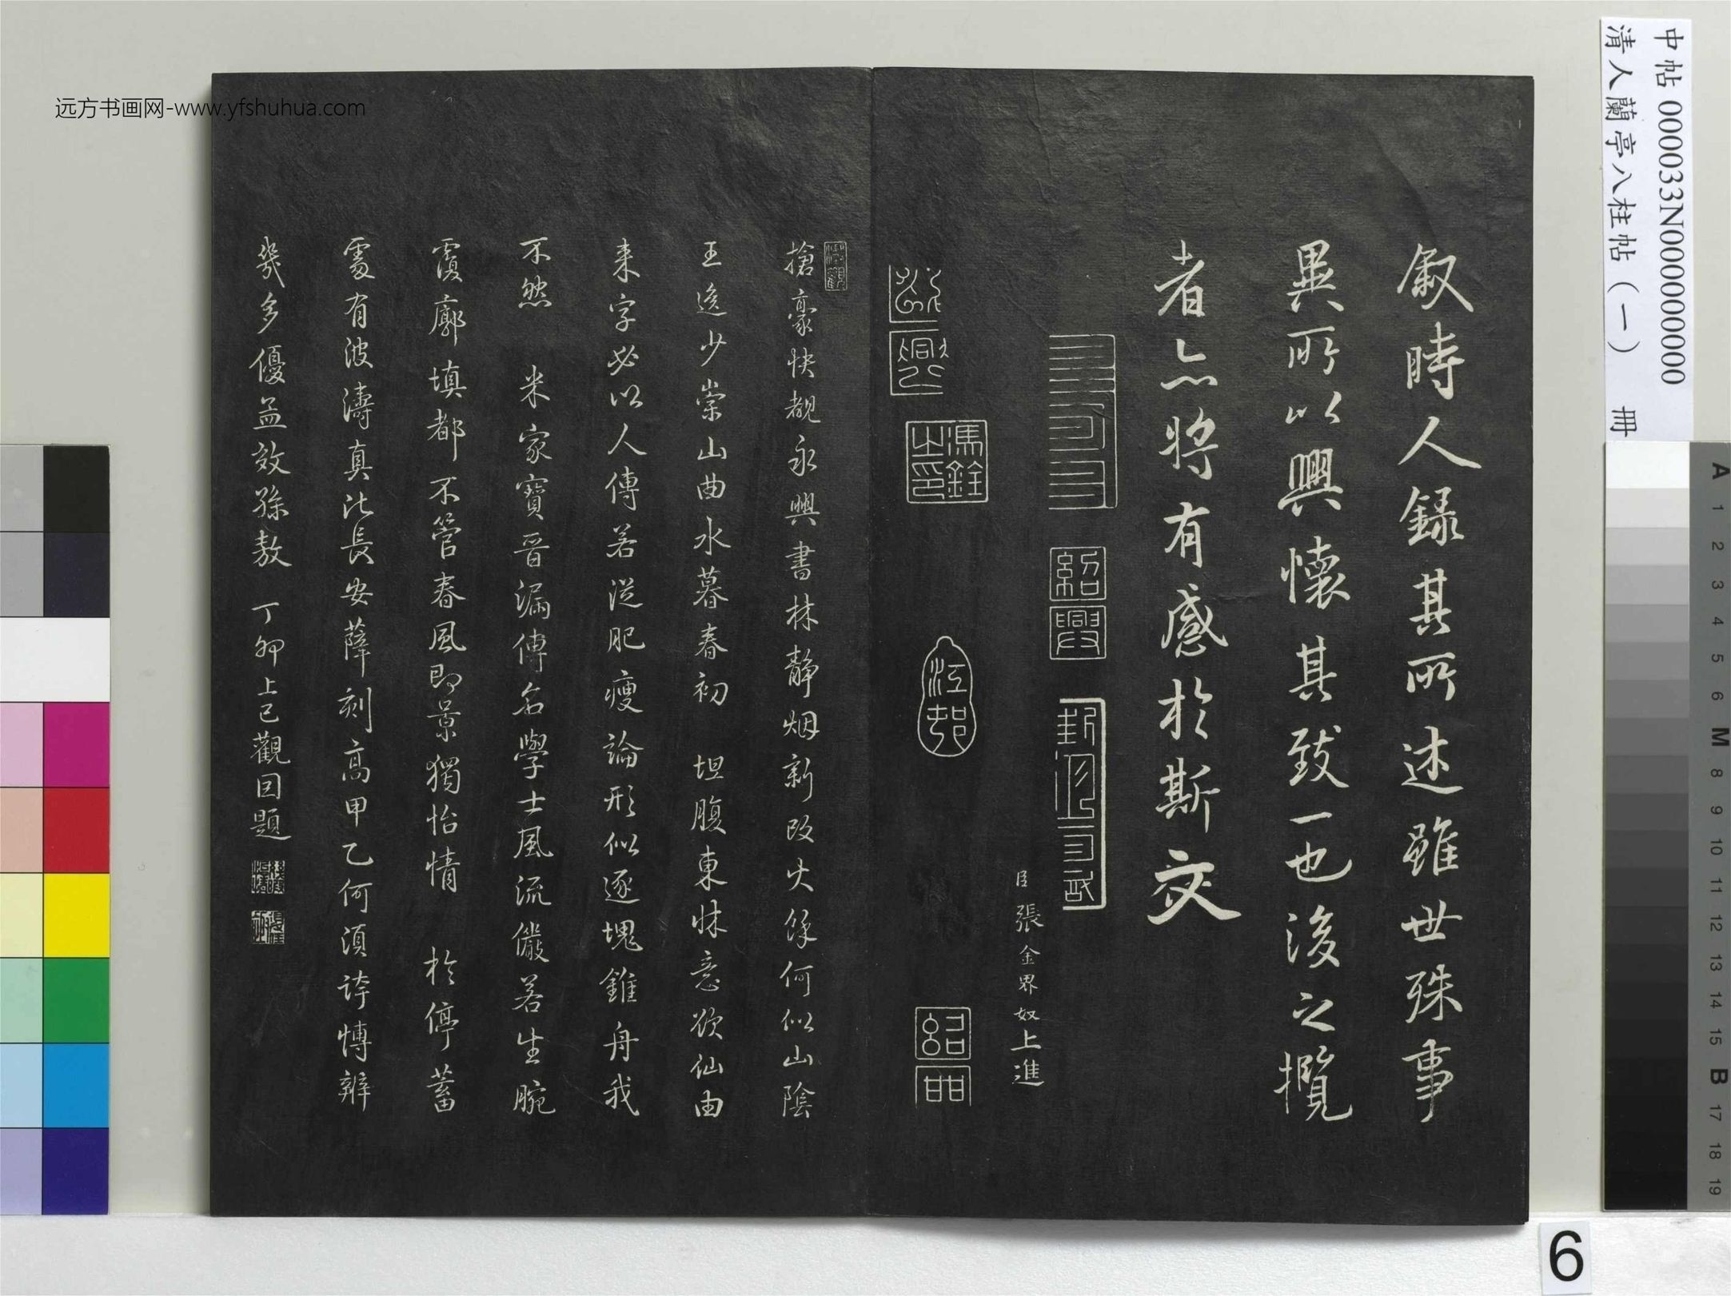 中帖 000033N000000000
清人蘭亭八柱帖(一) 冊
敘時人録其所述雖世殊事
異所以興懷其致一也後之攬
者亦將有感於斯文
紹興
臣張金界奴上進
馮銓之印
江邨
搶豪快覩永興書林静烟新改火餘何似山陰
王逸少崇山曲水暮春初 坦腹東牀意欲仙由
来字必以人傳若從肥瘦論形似逐塊錐舟我
不然 米家寶晋漏傳名學士風流儼若生腕
廓填都不管春風即景獨怡情 於停蓄
處有波濤真比長安薛刻高甲乙何須誇博辨
幾多優孟效孫敖 丁卯上巳觀因題
远方书画网-www.yfshuhua.com
A 1 2 3 4 5 6 M 8 9 10 11 12 13 14 15 B 17 18 19
6